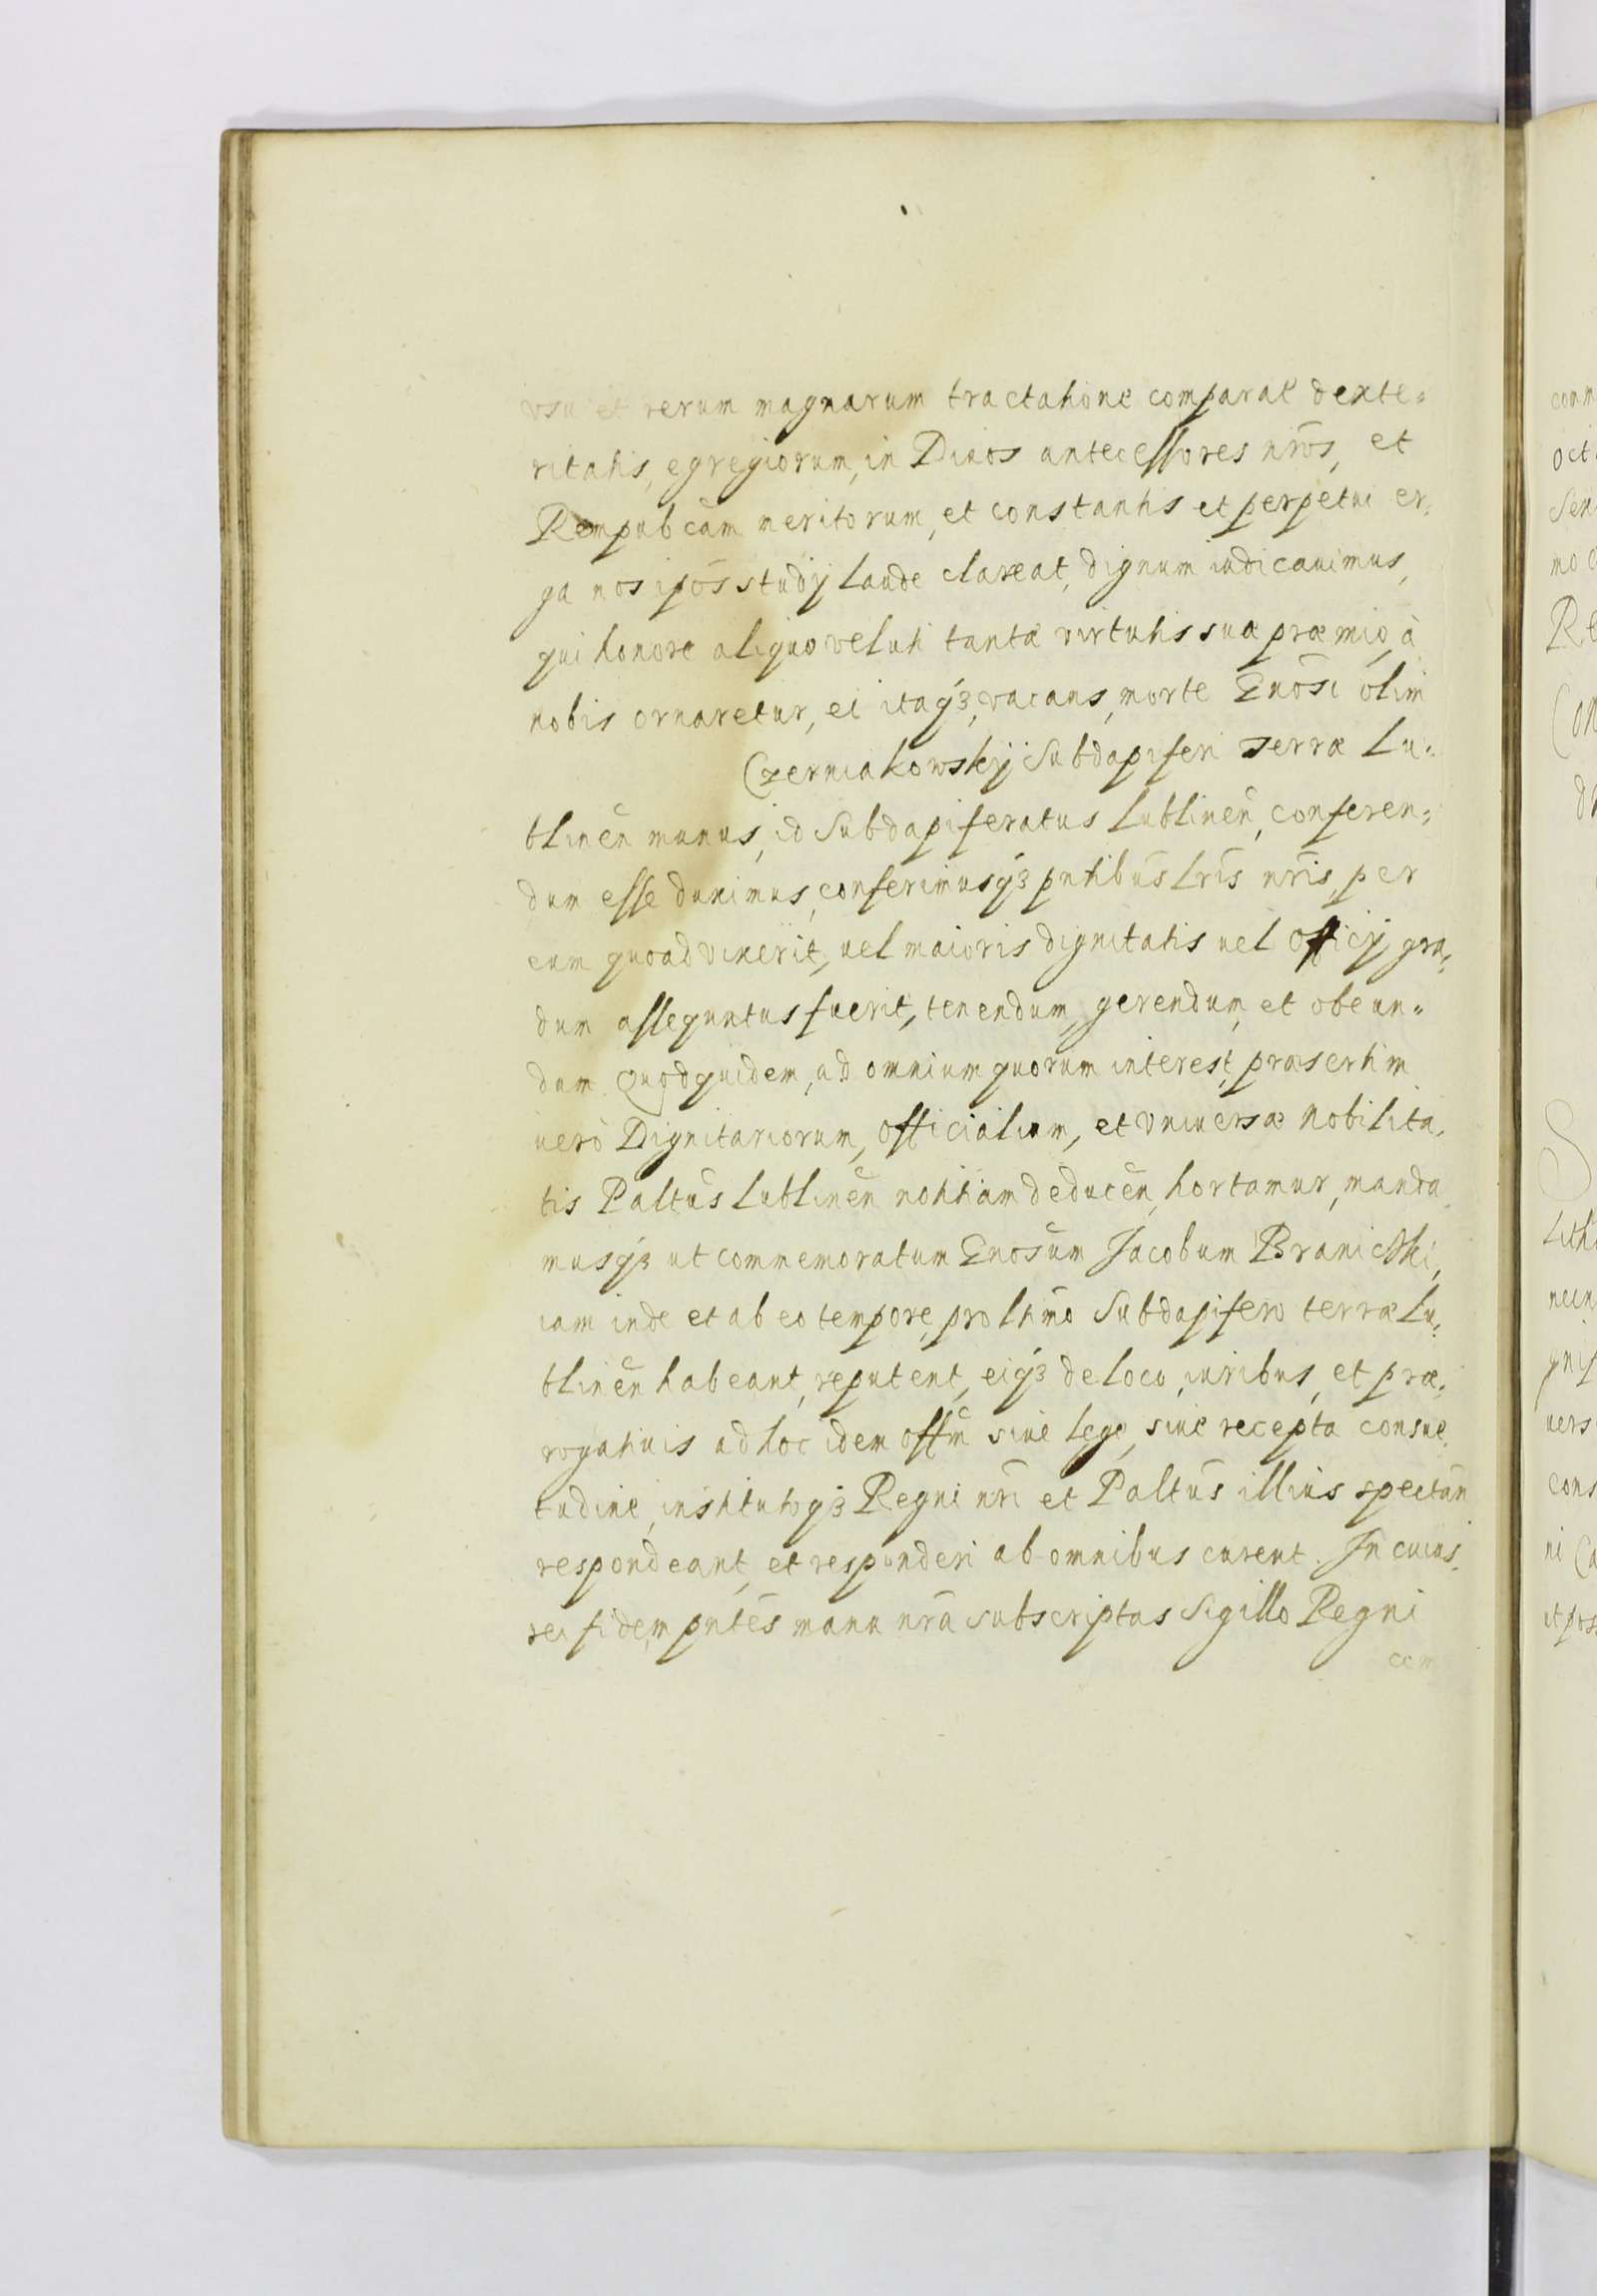 vsu et rerum magnarum tractatione comparatae dexte=
ritatis, egregiorum, in Diuos antecessores nr̃os, et
Rempubcãm meritorum, et constantis et perpetui er,
ga nos ip̃os studij laude clareat, dignum iudicauimus,
qui honore aliquo veluti tantæ virtutis suæ præmio, à
nobis ornaretur, ei itaq3, vacans, morte Gnõsi olim
Czerniakowskÿ Subdapiferi terræ Lu=
blineñ munus, id Subdapiferatus Lublineñ, conferen=
dum esse duximus, conferimusq3 pn̄tibus Lr̄is nr̄is, per
eum quoad vixerit, uel maioris dignitatis uel officij gra=
dum assequutus fuerit, tenendum, gerendum, et obeun=
dum. Quod quidem, ad omnium quorum interest, præsertim
uerò Dignitariorum, officialium, et vniuersæ nobilita,
tis Palt̄us Lublineñ notitiam deduceñ, hortamur, manda
musq3 ut commemoratum Gnos̃um Jacobum Branicki,
iam inde et ab eo tempore, pro ltimõ Subdapifero terræ Lu=
blineñ habeant, reputent, eiq3 de loco, iuribus, et præ=
rogatiuis ad hoc idem offm̃ siue lege, siue recepta consue
tudine, institutoq3 Regni nr̄i et Palt̄us illius spectañ
respondeant, et responderi ab omnibus curent. In cuius
rei fidem pn̄tes manu nr̄a subscriptas Sigillo Regni
com
conm
octa
Sen
mo
Re
Con
S
Lith
necn
gnif
uers
cons
ni Ca